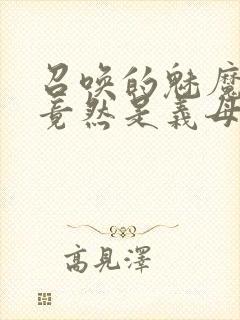 召唤的魅魔
竟然是義母
高見澤